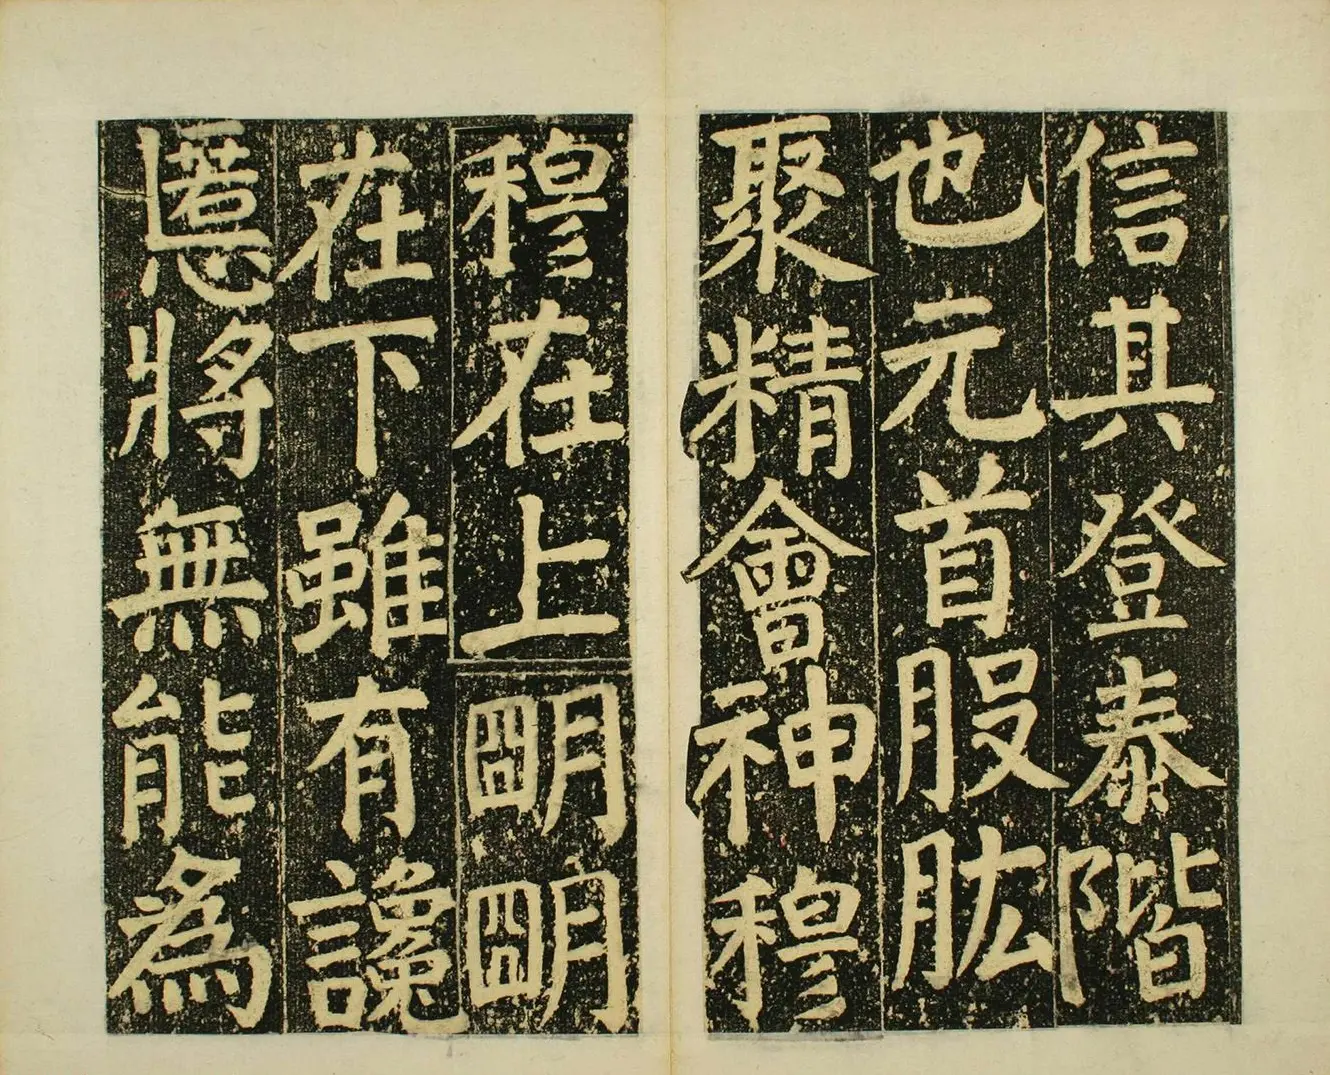 信其登泰階
也元首股肱
聚精會神穆
穆在上朙朙
在下雖有讒
慝將無能為